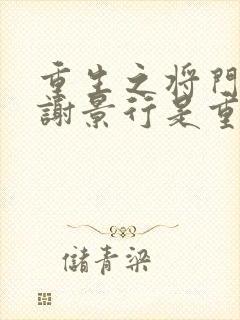 重生之将門
謝景行是重
儲青梁